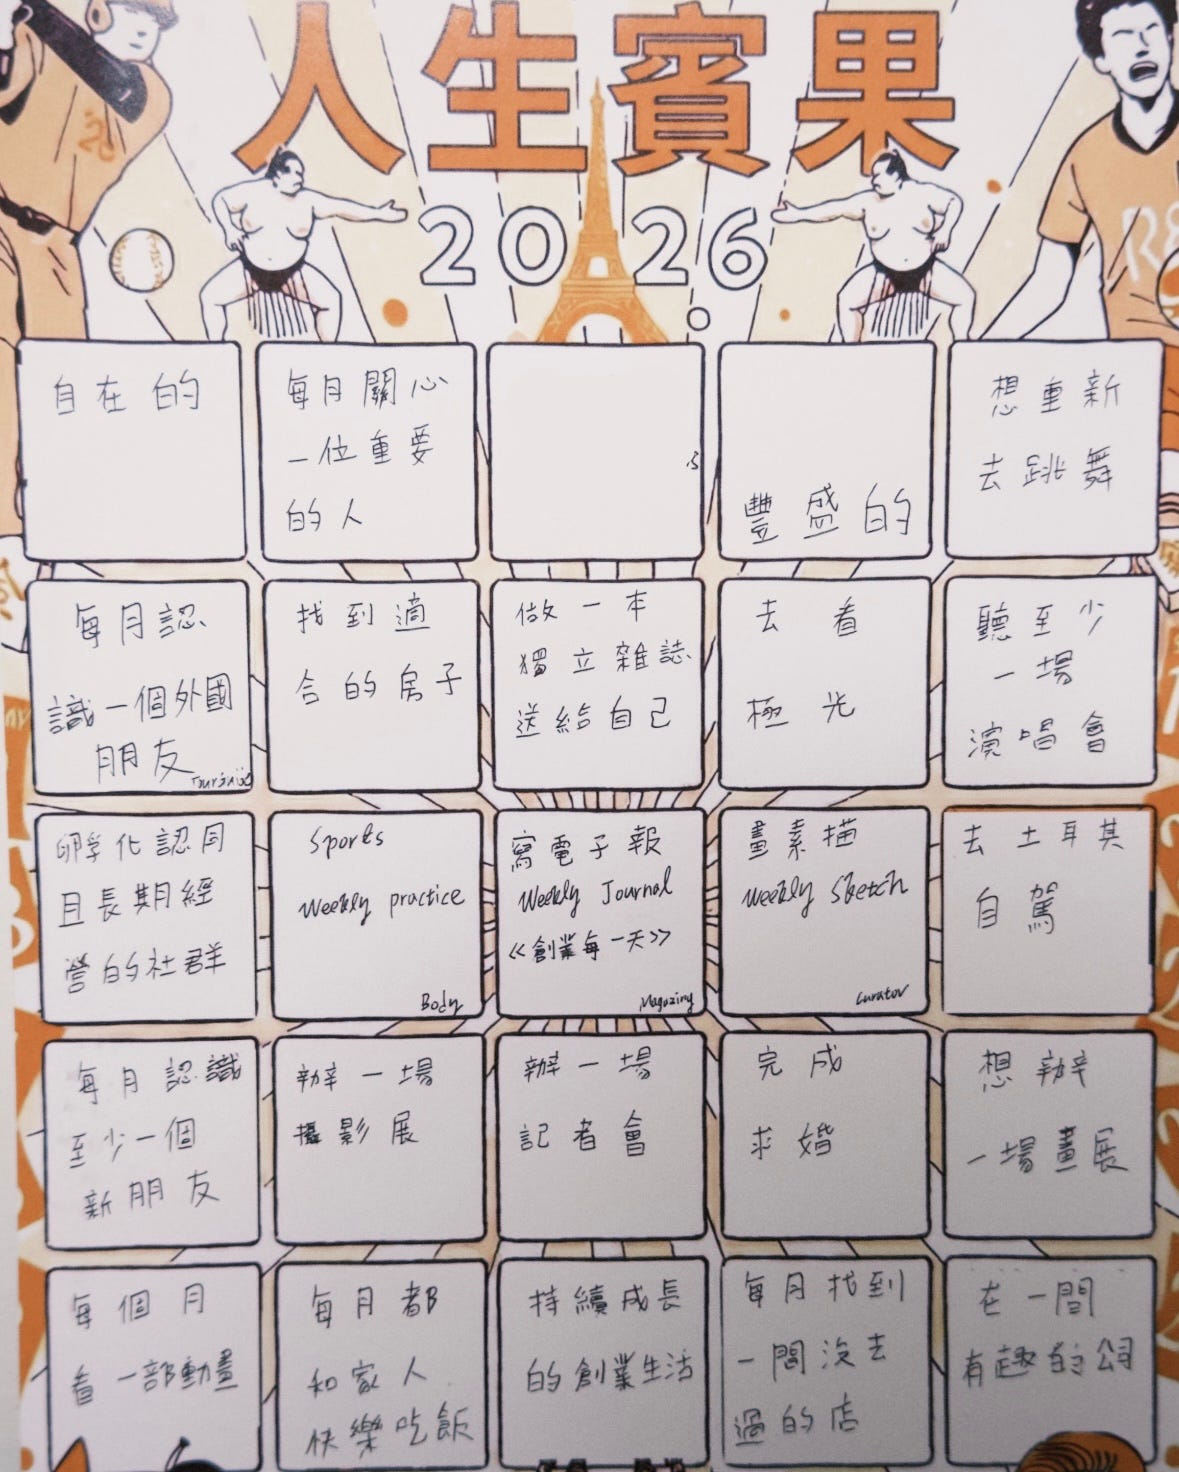 人生賓果
2026
自在的
每月關心
一位重要
的人
豐盛的
想重新
去跳舞
每月認
識一個外國
朋友
找到適
合的房子
做一本
獨立雜誌
送給自己
去看
極光
聽至少
一場
演唱會
孵化認同
且長期經
營的社群
Sports
Weekly practice
Body
寫電子報
Weekly Journal
《創業每一天》
畫素描
Weekly Sketch
Curator
去土耳其
自駕
每月認識
至少一個
新朋友
辦一場
攝影展
辦一場
記者會
完成
求婚
想辦
一場畫展
每個月
看一部動畫
每月都
和家人
快樂吃飯
持續成長
的創業生活
每月找到
一間沒去
過的店
在一間
有趣的公司